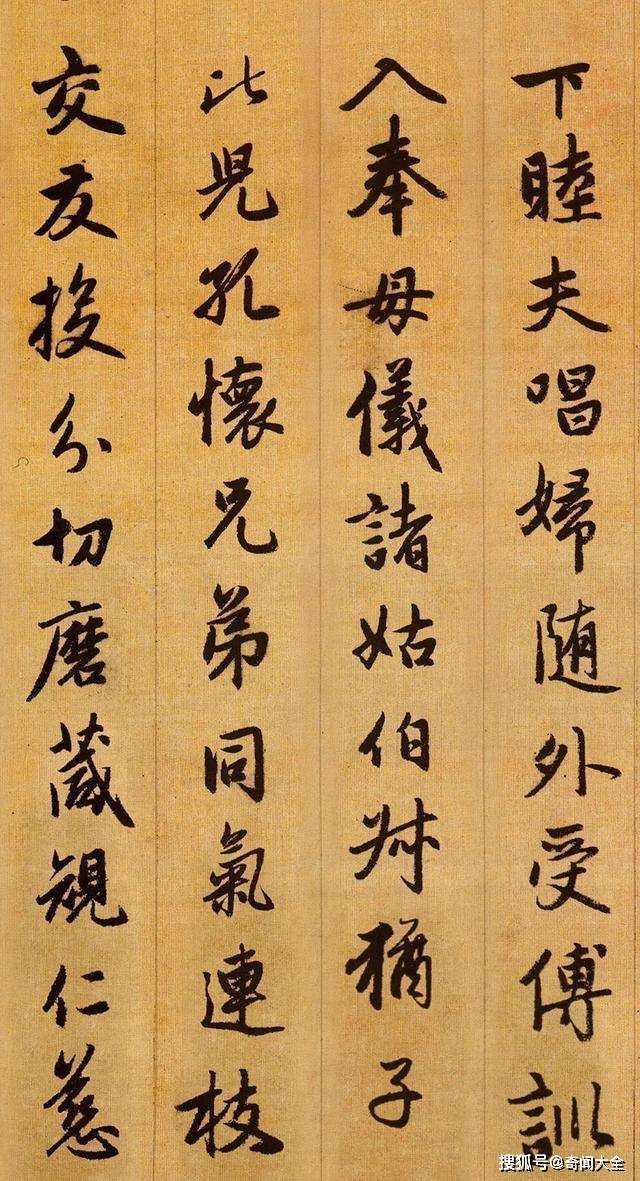 下睦夫唱婦随外受傅訓
入奉母儀諸姑伯叔猶子
比兒孔懷兄弟同氣連枝
交友投分切磨葴規仁慈
搜狐号@奇闻大全